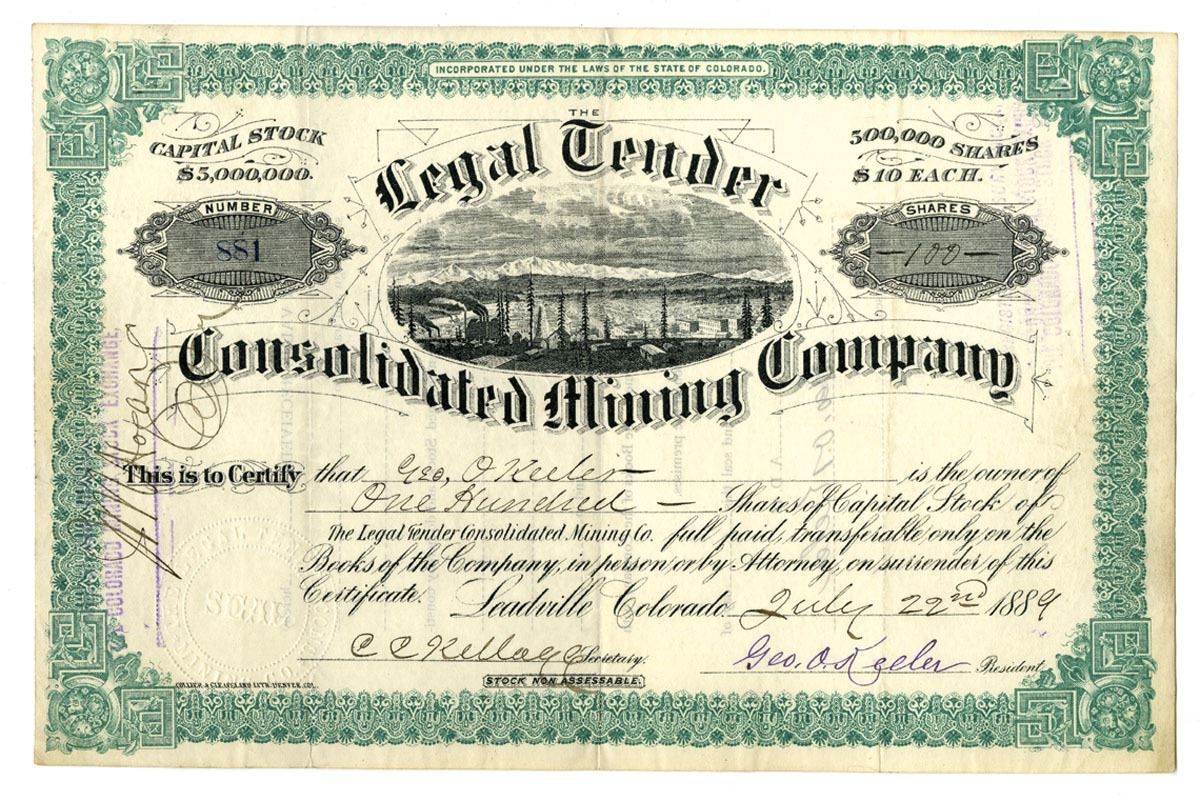 INCORPORATED UNDER THE LAWS OF THE STATE OF COLORADO.
CAPITAL STOCK
$5,000,000.
THE
Legal Tender
500,000 SHARES
$10 EACH.
NUMBER
881
SHARES
—100—
Consolidated Mining Company
This is to Certify that Geo, O Keeler is the owner of
One Hundred — Shares of Capital Stock of
The Legal Tender Consolidated Mining Co. full paid, transferable only on the
Books of the Company, in person or by Attorney, on surrender of this
Certificate. Leadville Colorado July 22nd 1889
C C Kellogg Secretary.
Geo. O. Keeler President.
STOCK NON ASSESSABLE.
COLLIER & CLEAVELAND LITH. DENVER, COL.
SEAL
COLORADO MINING STOCK EXCHANGE